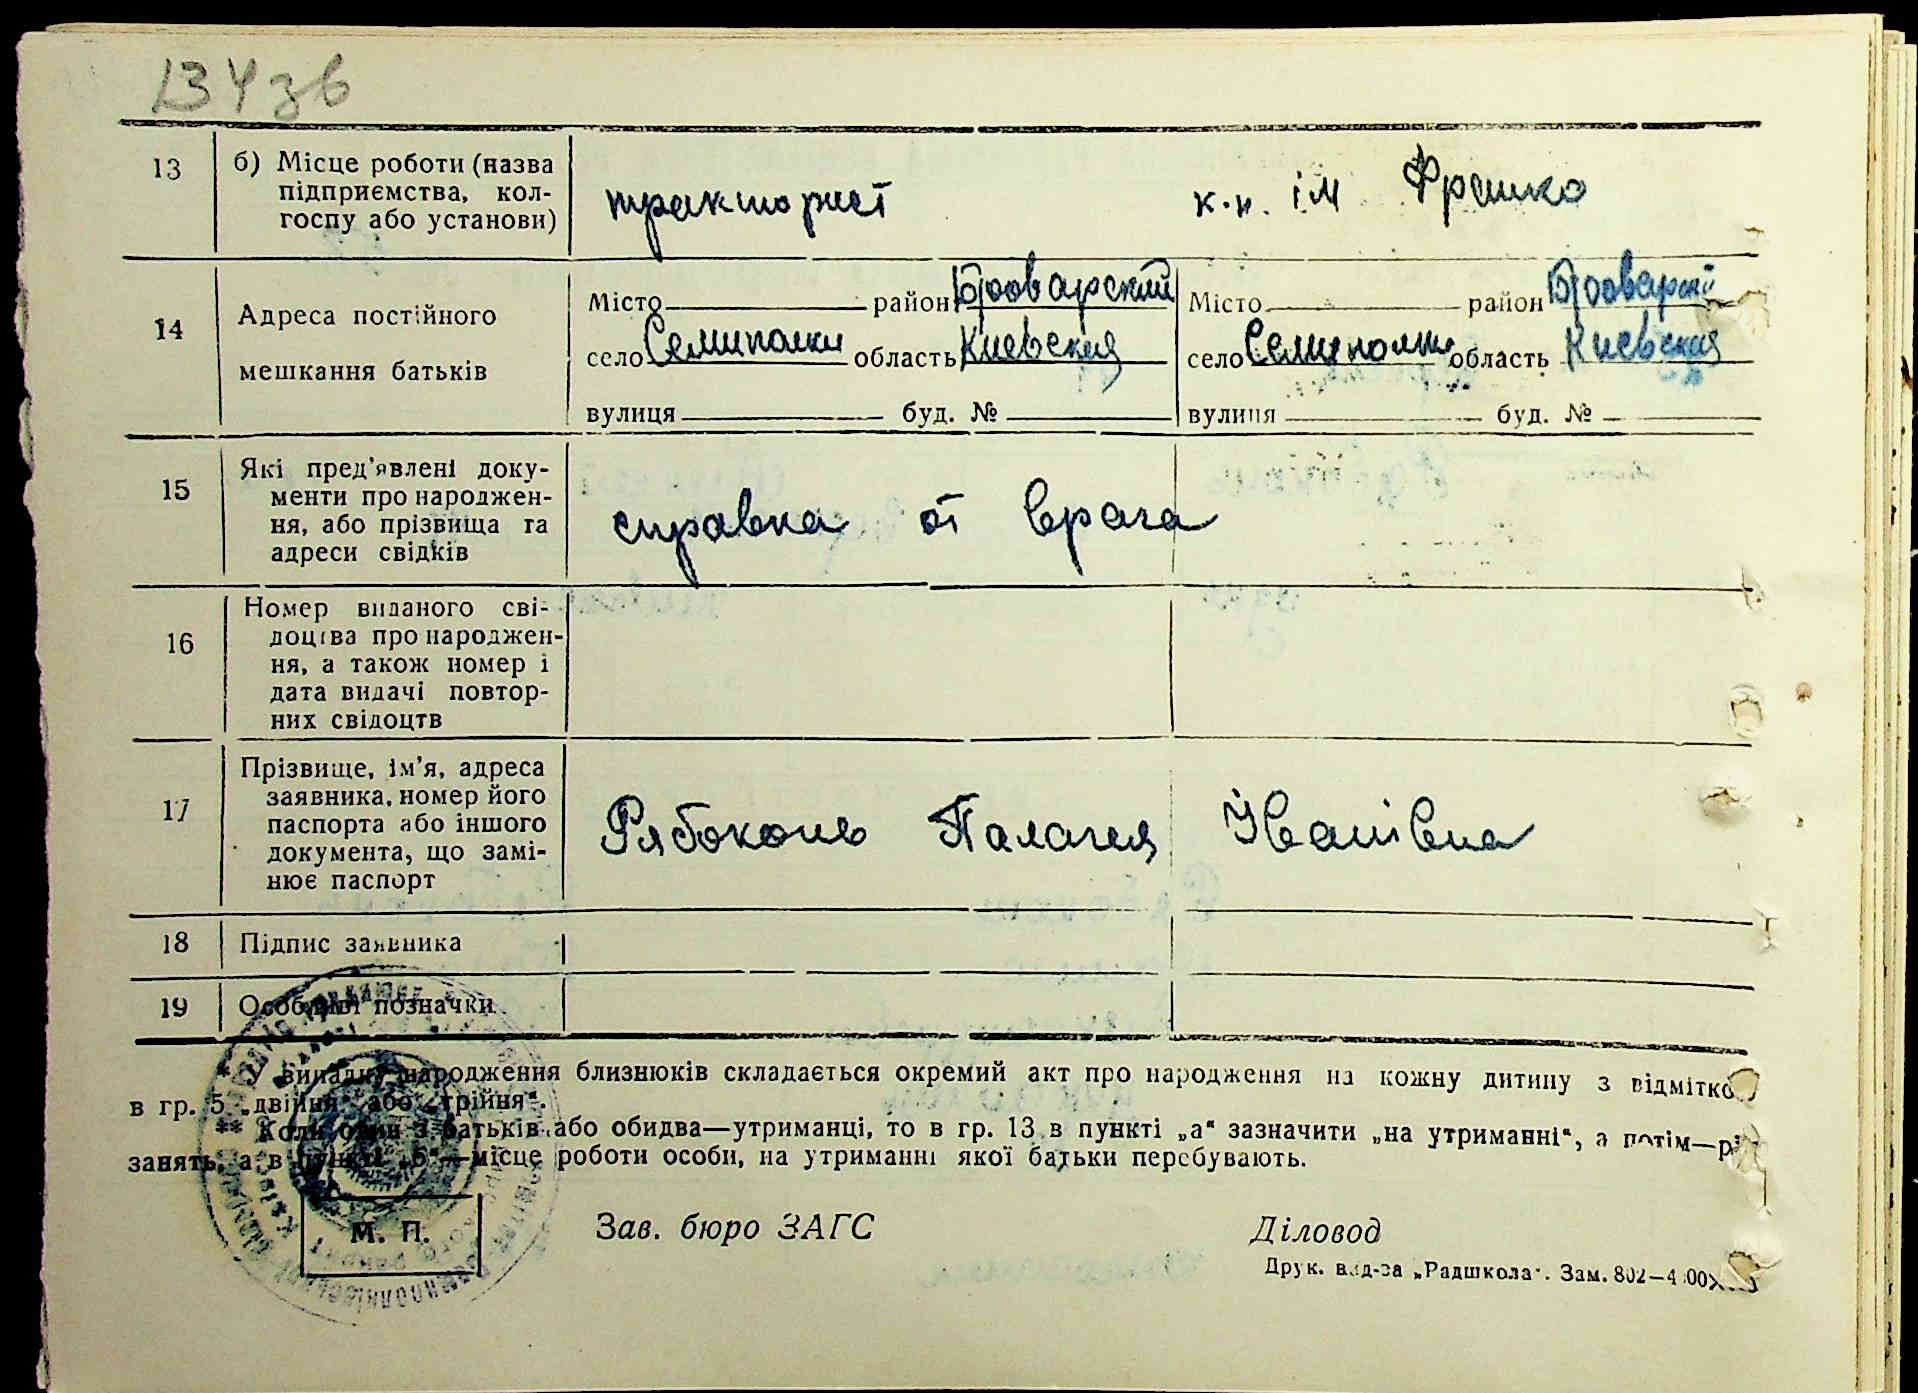 134 зв
13 б) Місце роботи (назва
підприємства, кол-
госпу або установи)
тракторист к.н. ім Франко
14 Адреса постійного
мешкання батьків
Місто район Броварский
село Семиполки область Киевская
вулиця буд. №
Місто район Броварский
село Семиполки область Киевская
вулиця буд. №
15 Які пред'явлені доку-
менти про народжен-
ня, або прізвища та
адреси свідків
справка от врача
16 Номер виданого сві-
доцтва про народжен-
ня, а також номер і
дата видачі повтор-
них свідоцтв
17 Прізвище, ім'я, адреса
заявника, номер його
паспорта або іншого
документа, що замі-
нює паспорт
Рябоконь Палагея Іванівна
18 Підпис заявника
19 Особливі позначки
У випадку народження близнюків складається окремий акт про народження на кожну дитину з відмітко
в гр. 5 „двійня" або „трійня".
Коли один з батьків або обидва—утриманці, то в гр. 13 в пункті „а" зазначити „на утриманні", а потім—рі
занять, а в пункті „б"—місце роботи особи, на утриманні якої батьки перебувають.
М. П.
Зав. бюро ЗАГС
Діловод
Друк. вид-ва „Радшкола". Зам. 802—4